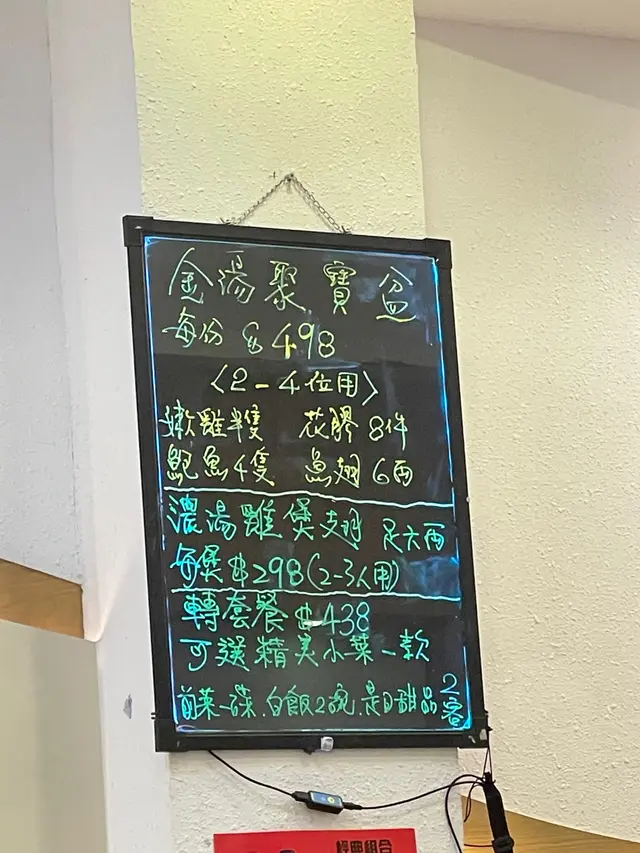 金湯聚寶盆
每份 $498
〈2-4位用〉
嫩雞半隻 花膠8件
鮑魚4隻 魚翅6両
濃湯雞煲翅 足六両
每煲$298(2-3人用)
轉套餐$438
可選精美小菜一款
前菜一碟.白飯2碗.是日甜品2客
經典組合